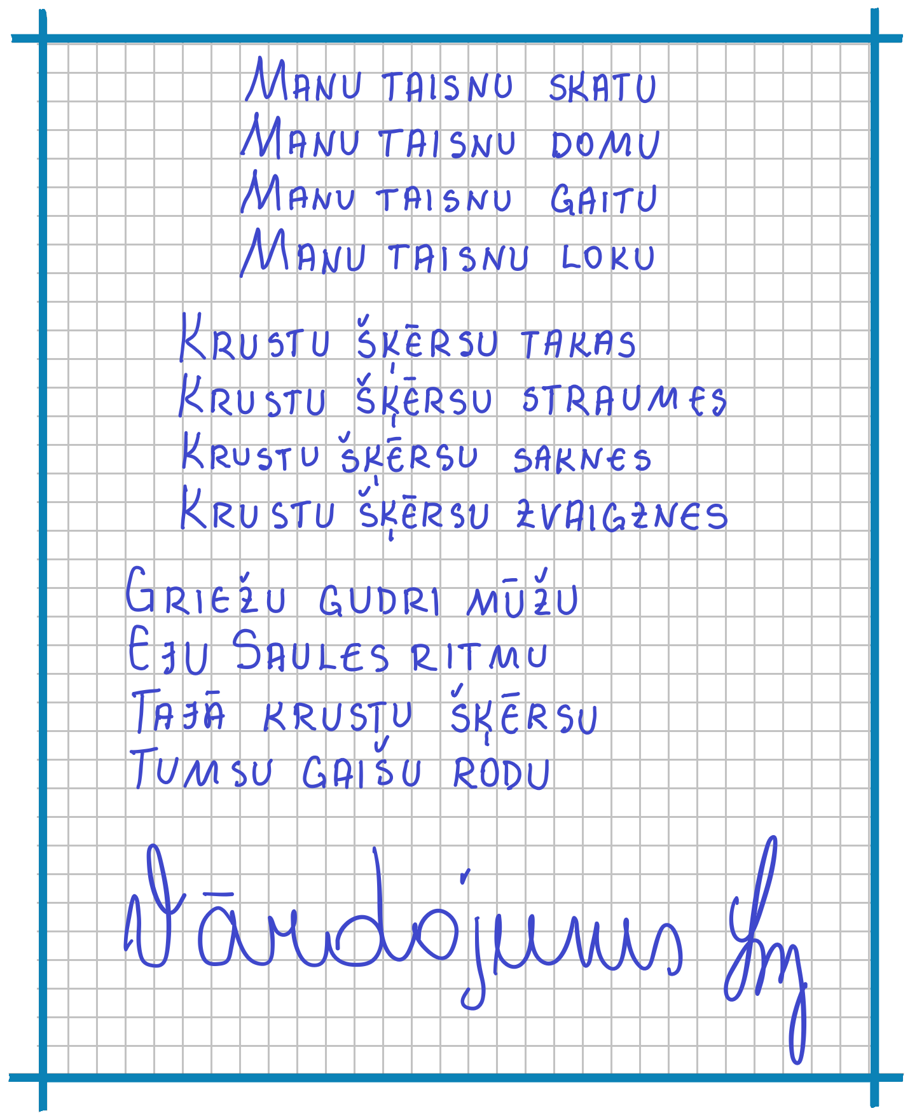 Manu taisnu skatu
Manu taisnu domu
Manu taisnu gaitu
Manu taisnu loku
Krustu šķērsu takas
Krustu šķērsu straumes
Krustu šķērsu saknes
Krustu šķērsu zvaigznes
Griežu gudri mūžu
Eju Saules ritmu
Tajā krustu šķērsu
Tumsu gaišu rodu
Vārdojums